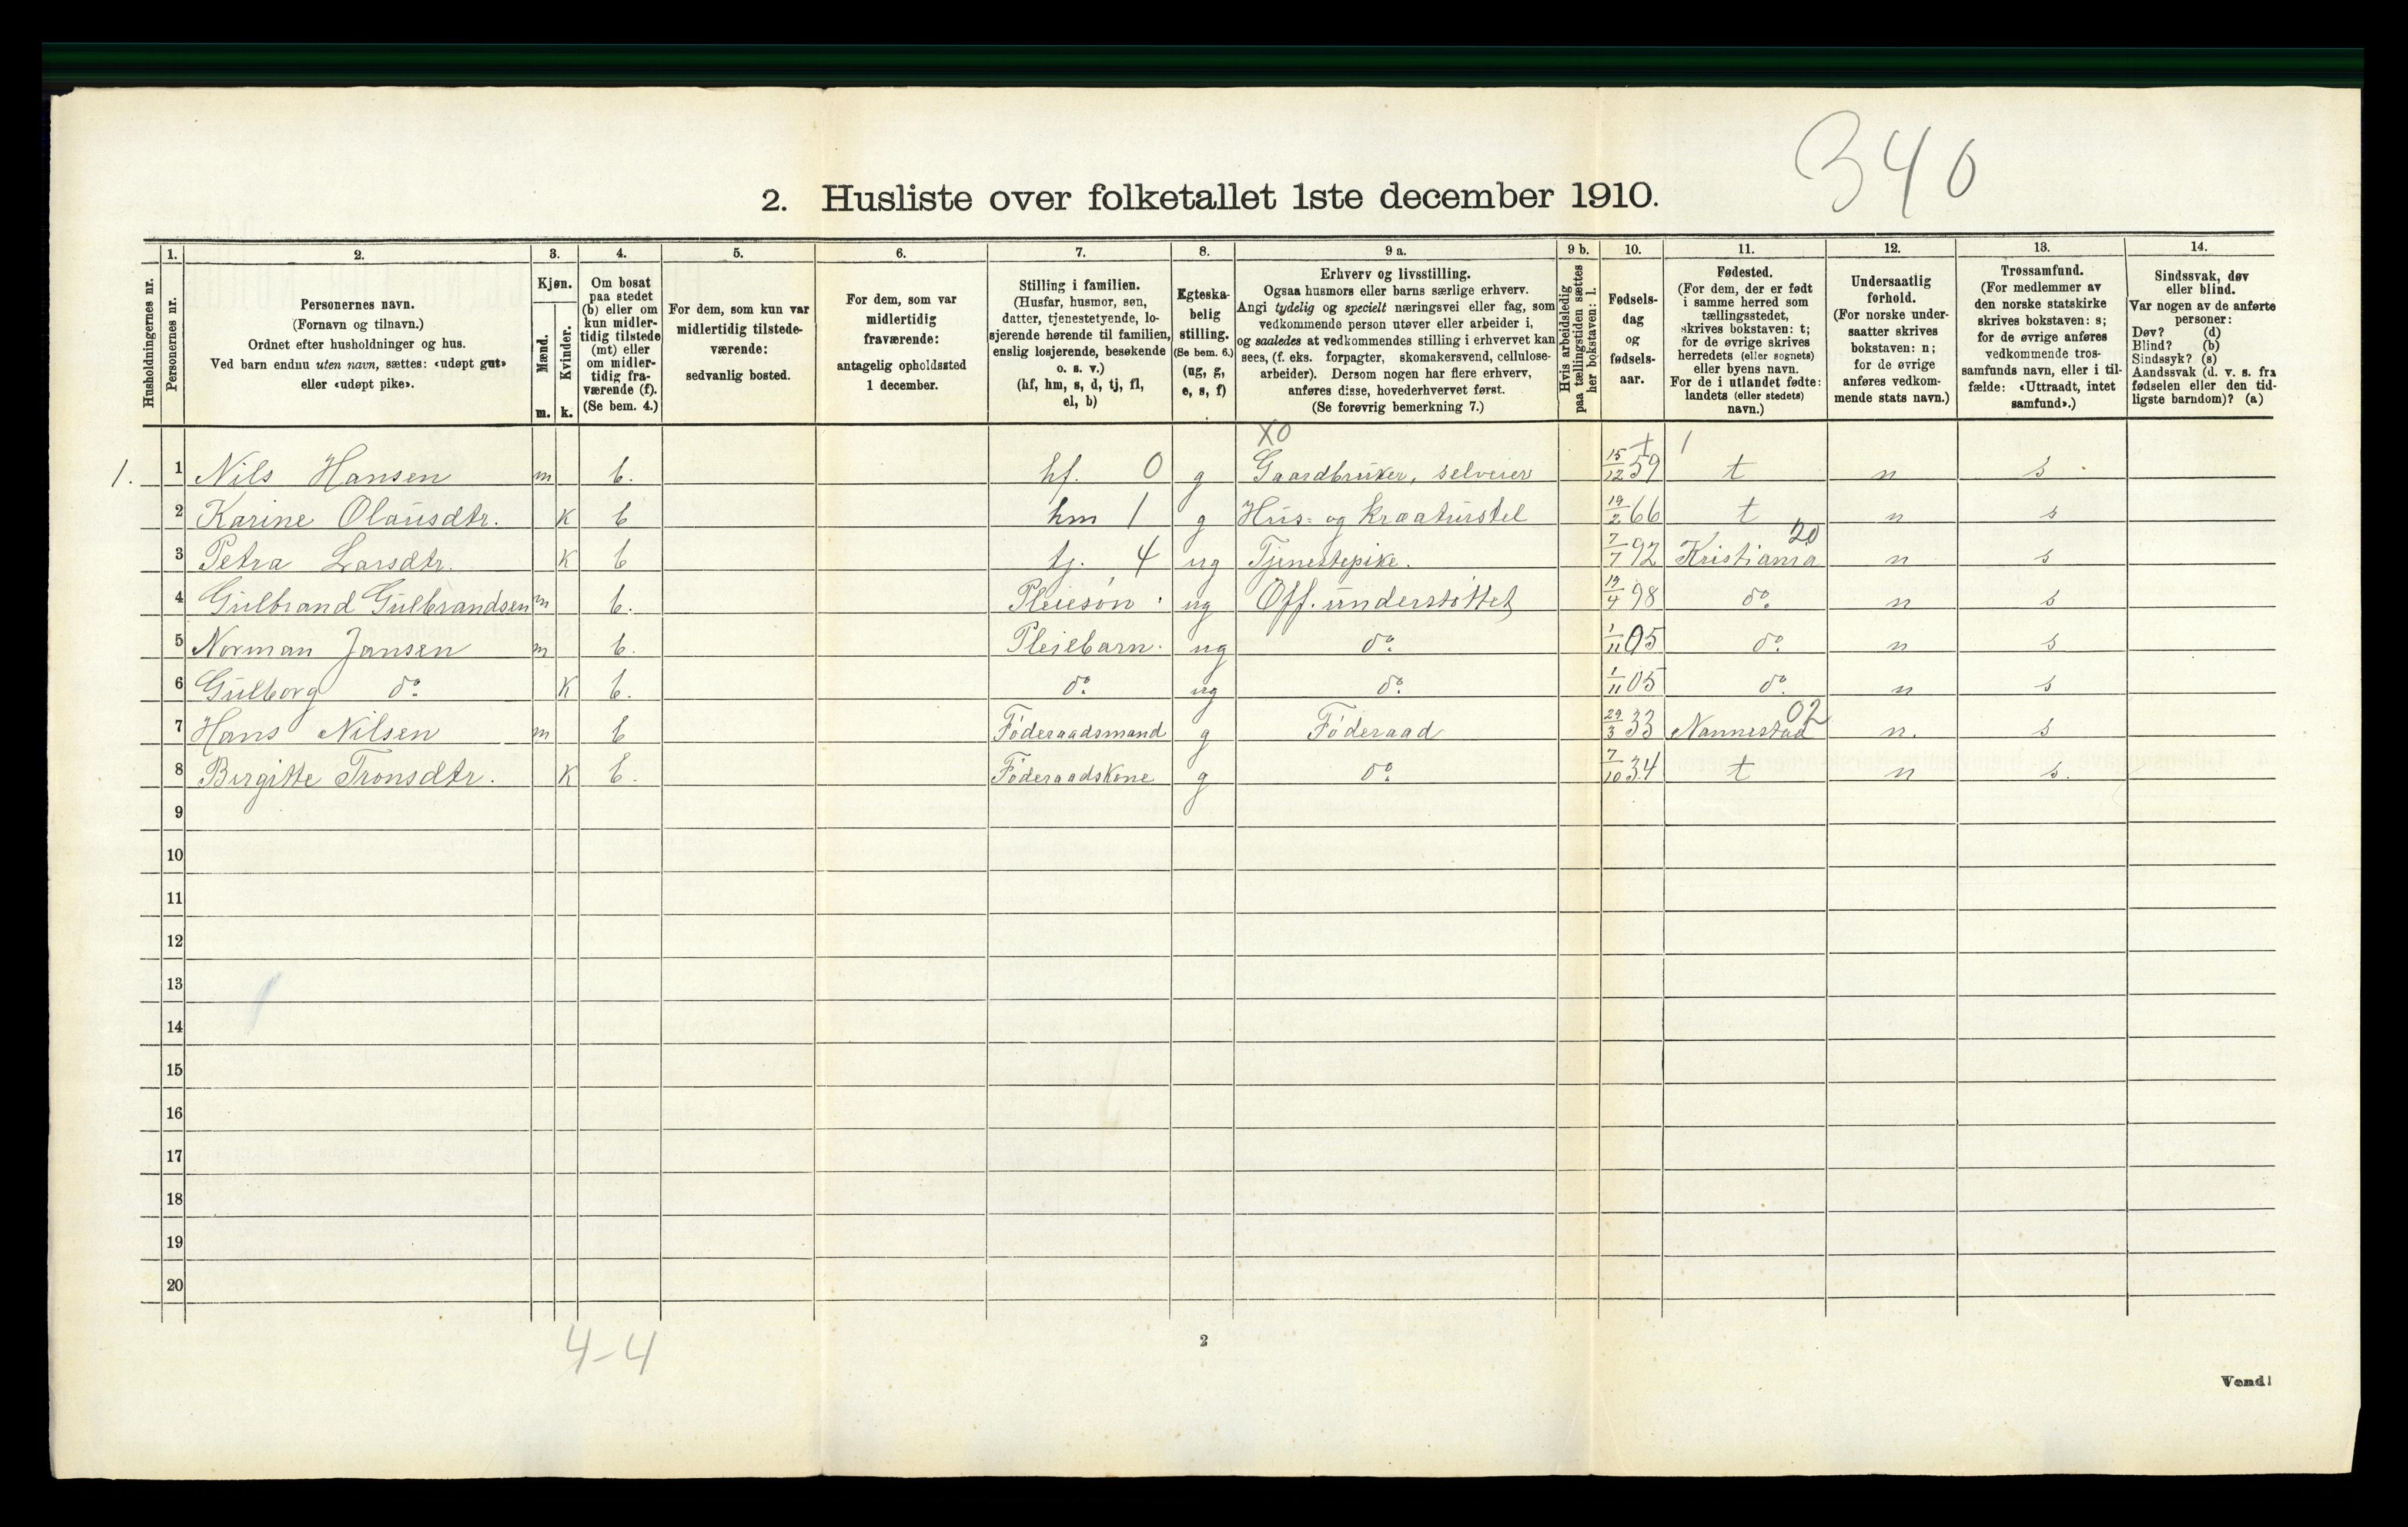 340
2. Husliste over folketallet 1ste december 1910.
Husholdningernes nr.
1. Personernes nr.
2. Personernes navn. (Fornavn og tilnavn.) Ordnet efter husholdninger og hus. Ved barn endnu uten navn, sættes: «udøpt gut» eller «udøpt pike».
3. Kjøn. Mænd. m. Kvinder. k.
4. Om bosat paa stedet (b) eller om kun midlertidig tilstede (mt) eller om midlertidig fraværende (f). (Se bem. 4.)
5. For dem, som kun var midlertidig tilstedeværende: sedvanlig bosted.
6. For dem, som var midlertidig fraværende: antagelig opholdssted 1 december.
7. Stilling i familien. (Husfar, husmor, søn, datter, tjenestetyende, losjerende hørende til familien, enslig losjerende, besøkende o. s. v.) (hf, hm, s, d, tj, fl, el, b)
8. Egteskabelig stilling. (Se bem. 6.) (ug, g, e, s, f)
9 a. Erhverv og livsstilling. Ogsaa husmors eller barns særlige erhverv. Angi tydelig og specielt næringsvei eller fag, som vedkommende person utøver eller arbeider i, og saaledes at vedkommendes stilling i erhvervet kan sees, (f. eks. forpagter, skomakersvend, cellulosearbeider). Dersom nogen har flere erhverv, anføres disse, hovederhvervet først. (Se forøvrig bemerkning 7.)
9 b. Hvis arbeidsledig paa tællingstiden sættes her bokstaven: l.
10. Fødselsdag og fødselsaar.
11. Fødested. (For dem, der er født i samme herred som tællingsstedet, skrives bokstaven: t; for de øvrige skrives herredets (eller sognets) eller byens navn. For de i utlandet fødte: landets (eller stedets) navn.)
12. Undersaatlig forhold. (For norske undersaatter skrives bokstaven: n; for de øvrige anføres vedkommende stats navn.)
13. Trossamfund. (For medlemmer av den norske statskirke skrives bokstaven: s; for de øvrige anføres vedkommende trossamfunds navn, eller i tilfælde: «Uttraadt, intet samfund».)
14. Sindssvak, døv eller blind. Var nogen av de anførte personer: Døv? (d) Blind? (b) Sindssyk? (s) Aandssvak (d. v. s. fra fødselen eller den tidligste barndom)? (a)
X0 t 1
1. 1 Nils Hansen m b. hf. 0 g Gaardbruker, selveier 15/12 59 t n s
2 Karine Olausdtr. K b hm 1 g Hus- og kreaturstel 19/2 66 t n s
20
3 Petra Larsdtr. K b tj. 4 ug Tjenestepike. 7/7 92 Kristiania n s
4 Gulbrand Gulbrandsen m b. Pleiesön ug Off. understöttet 19/4 98 do. n s
5 Norman Jansen m b. Pleiebarn. ug do. 1/11 05 do. n s
6 Gulborg do. K b. do. ug do. 1/11 05 do. n s
02
7 Hans Nilsen m b Föderaadsmand g Föderaad 29/3 33 Nannestad n. s
8 Birgitte Tronsdtr. K b. Föderaadskone g do 7/10 34 t n s.
9
10
11
12
13
14
15
16
17
18
19
20
4-4
2
Vend!